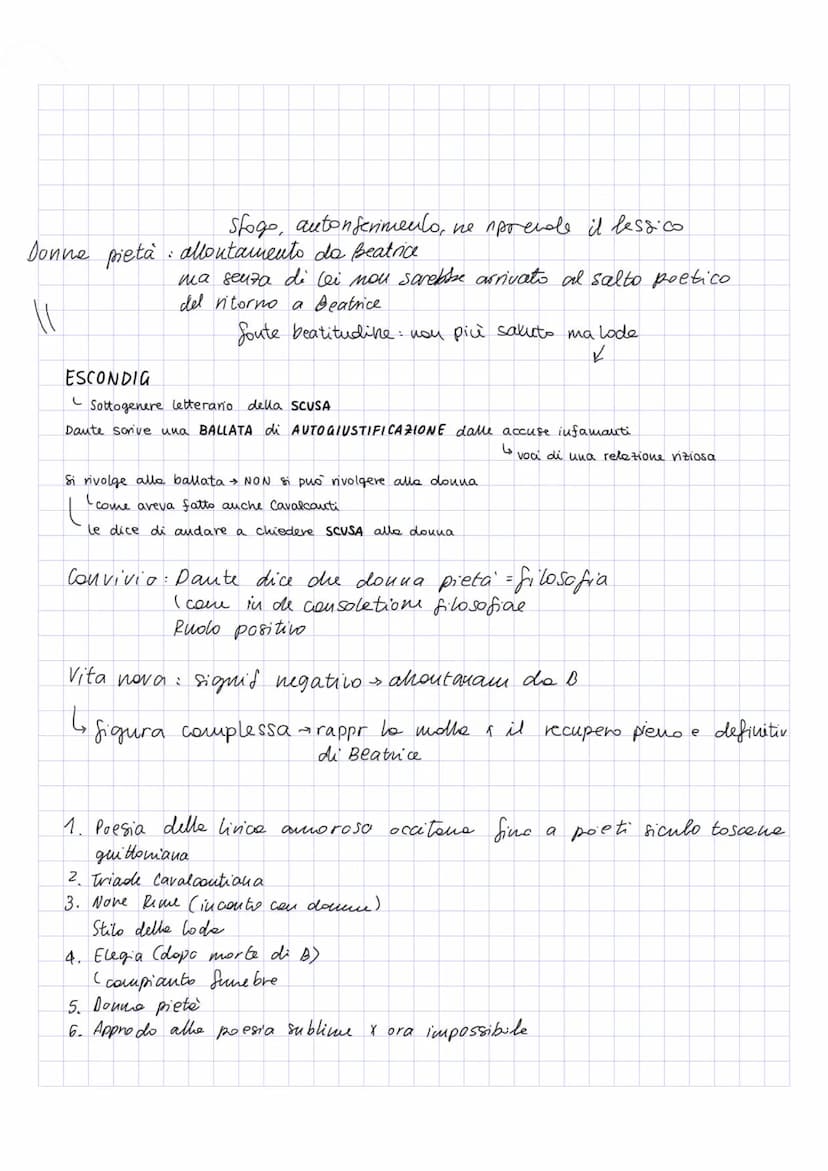 sfogo, autoriferimento, ne riprende il lessico
Donna pietà : allontamento da Beatrice
ma senza di lei non sarebbe arrivato al salto poetico
del ritorno a Beatrice
fonte beatitudine : non più saluto ma lode
↓
ESCONDIG
↳ Sottogenere letterario della SCUSA
Dante scrive una BALLATA di AUTOGIUSTIFICAZIONE dalle accuse infamanti
↳ voci di una relazione viziosa
Si rivolge alla ballata → NON si può rivolgere alla donna
come aveva fatto anche Cavalcanti
le dice di andare a chiedere SCUSA alla donna
Convivio : Dante dice che donna pietà = filosofia
come in de consolatione filosofiae
Ruolo positivo
Vita nova : signif negativo → allontanam da B
↳ figura complessa → rappr la molla x il recupero pieno e definitiv
di Beatrice
1. Poesia della lirica amorosa occitana fino a poeti siculo toscana
guittoniana
2. Triade Cavalcantiana
3. Nove Rime (incontro con donne)
Stilo della loda
4. Elegia (dopo morte di B)
compianto funebre
5. Donna pietà
6. Approdo alla poesia sublime x ora impossibile